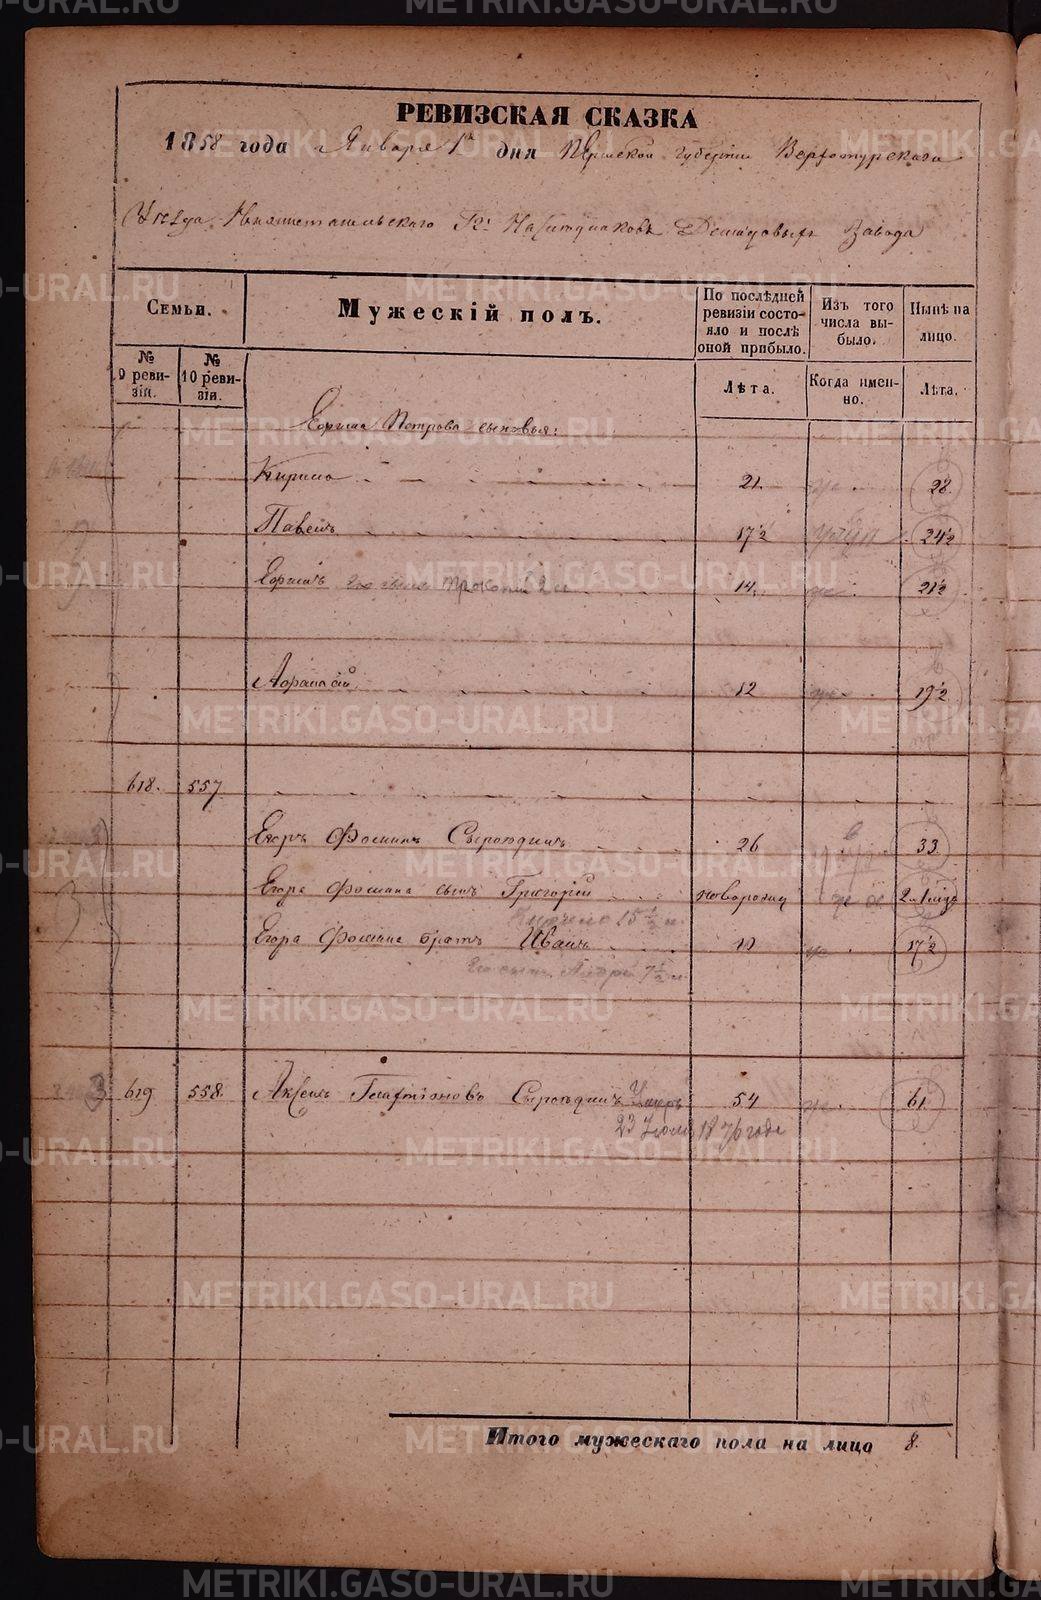 РЕВИЗСКАЯ СКАЗКА
1858 года Января 1 дня Пермской губернии Верхотурскаго
Уезда Гг: Наследниковъ Демидовыхъ Завода
Семьи.
Мужескій полъ.
По послѣдней ревизіи состояло и послѣ оной прибыло.
Изъ того числа выбыло.
Нынѣ на лицо.
№ 9 ревизіи.
№ 10 ревизіи.
Лѣта.
Когда именно.
Лѣта.
Ефима Петрова сыновья:
Кирило 21. 28.
Павелъ 17½ 24½
Ефимъ его сынъ Прокопій 2 л 14. 21½
Афанасій 12 19½
618. 557
Егоръ Фоминъ Сыроѣдинъ 26 33
Егора Фомина сынъ Григорій новорожд
15½ л.
Егора Фомина братъ Иванъ 10 17½
Его сынъ Андрей 7½ л
619 558. Сыроѣдинъ Умеръ 54 61.
23 1876 года
Итого мужескаго пола на лицо 8.
METRIKI.GASO-URAL.RU